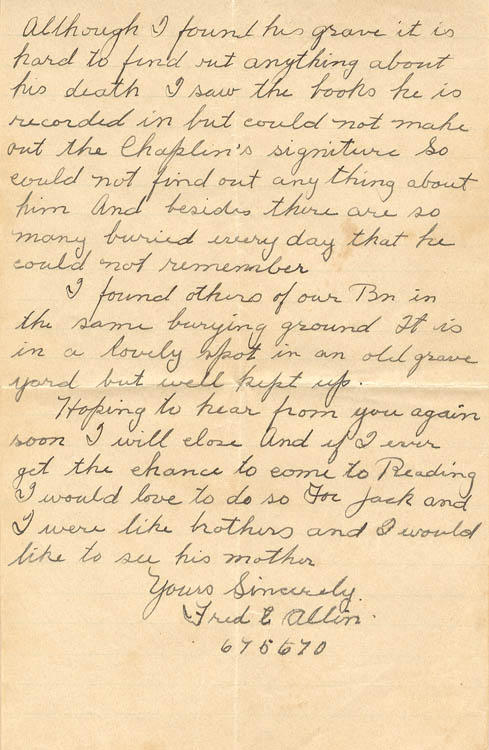 Although I found his grave it is
hard to find out anything about
his death I saw the books he is
recorded in but could not make
out the Chaplin's signiture So
could not find out any thing about
him And besides there are so
many buried every day that he
could not remember
I found others of our Bn in
the same burying ground It is
in a lovely spot in an old grave
yard but well kept up.
Hoping to hear from you again
soon I will close And if I ever
get the chance to come to Reading
I would love to do so For Jack and
I were like brothers and I would
like to see his mother
Yours Sincerely.
Fred E Allin.
675670